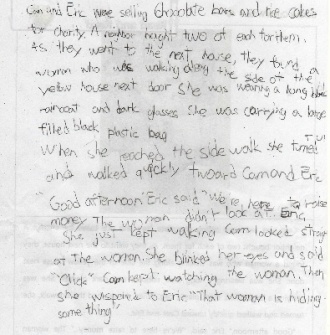 Cam and Eric were selling chocolate bars and rice cakes
for charity. A neighbor bought two of each for them.
As they went to the next house, they found a
woman who was walking along the side of the
yellow house next door She was wearing a long black
raincoat and dark glasses She was carrying a large
filled black plastic bag
When She reached the side walk she turned
and walked quickly twoard Cam and Eric
"Good afternoon" Eric said "We're here to raise
money The woman didn't look at Eric,
She just kept walking Cam looked straig
at the woman. She blinked her eyes and said
"Click" Cam kept watching the woman. Then
she wispered to Eric "That woman is hiding
some thing"